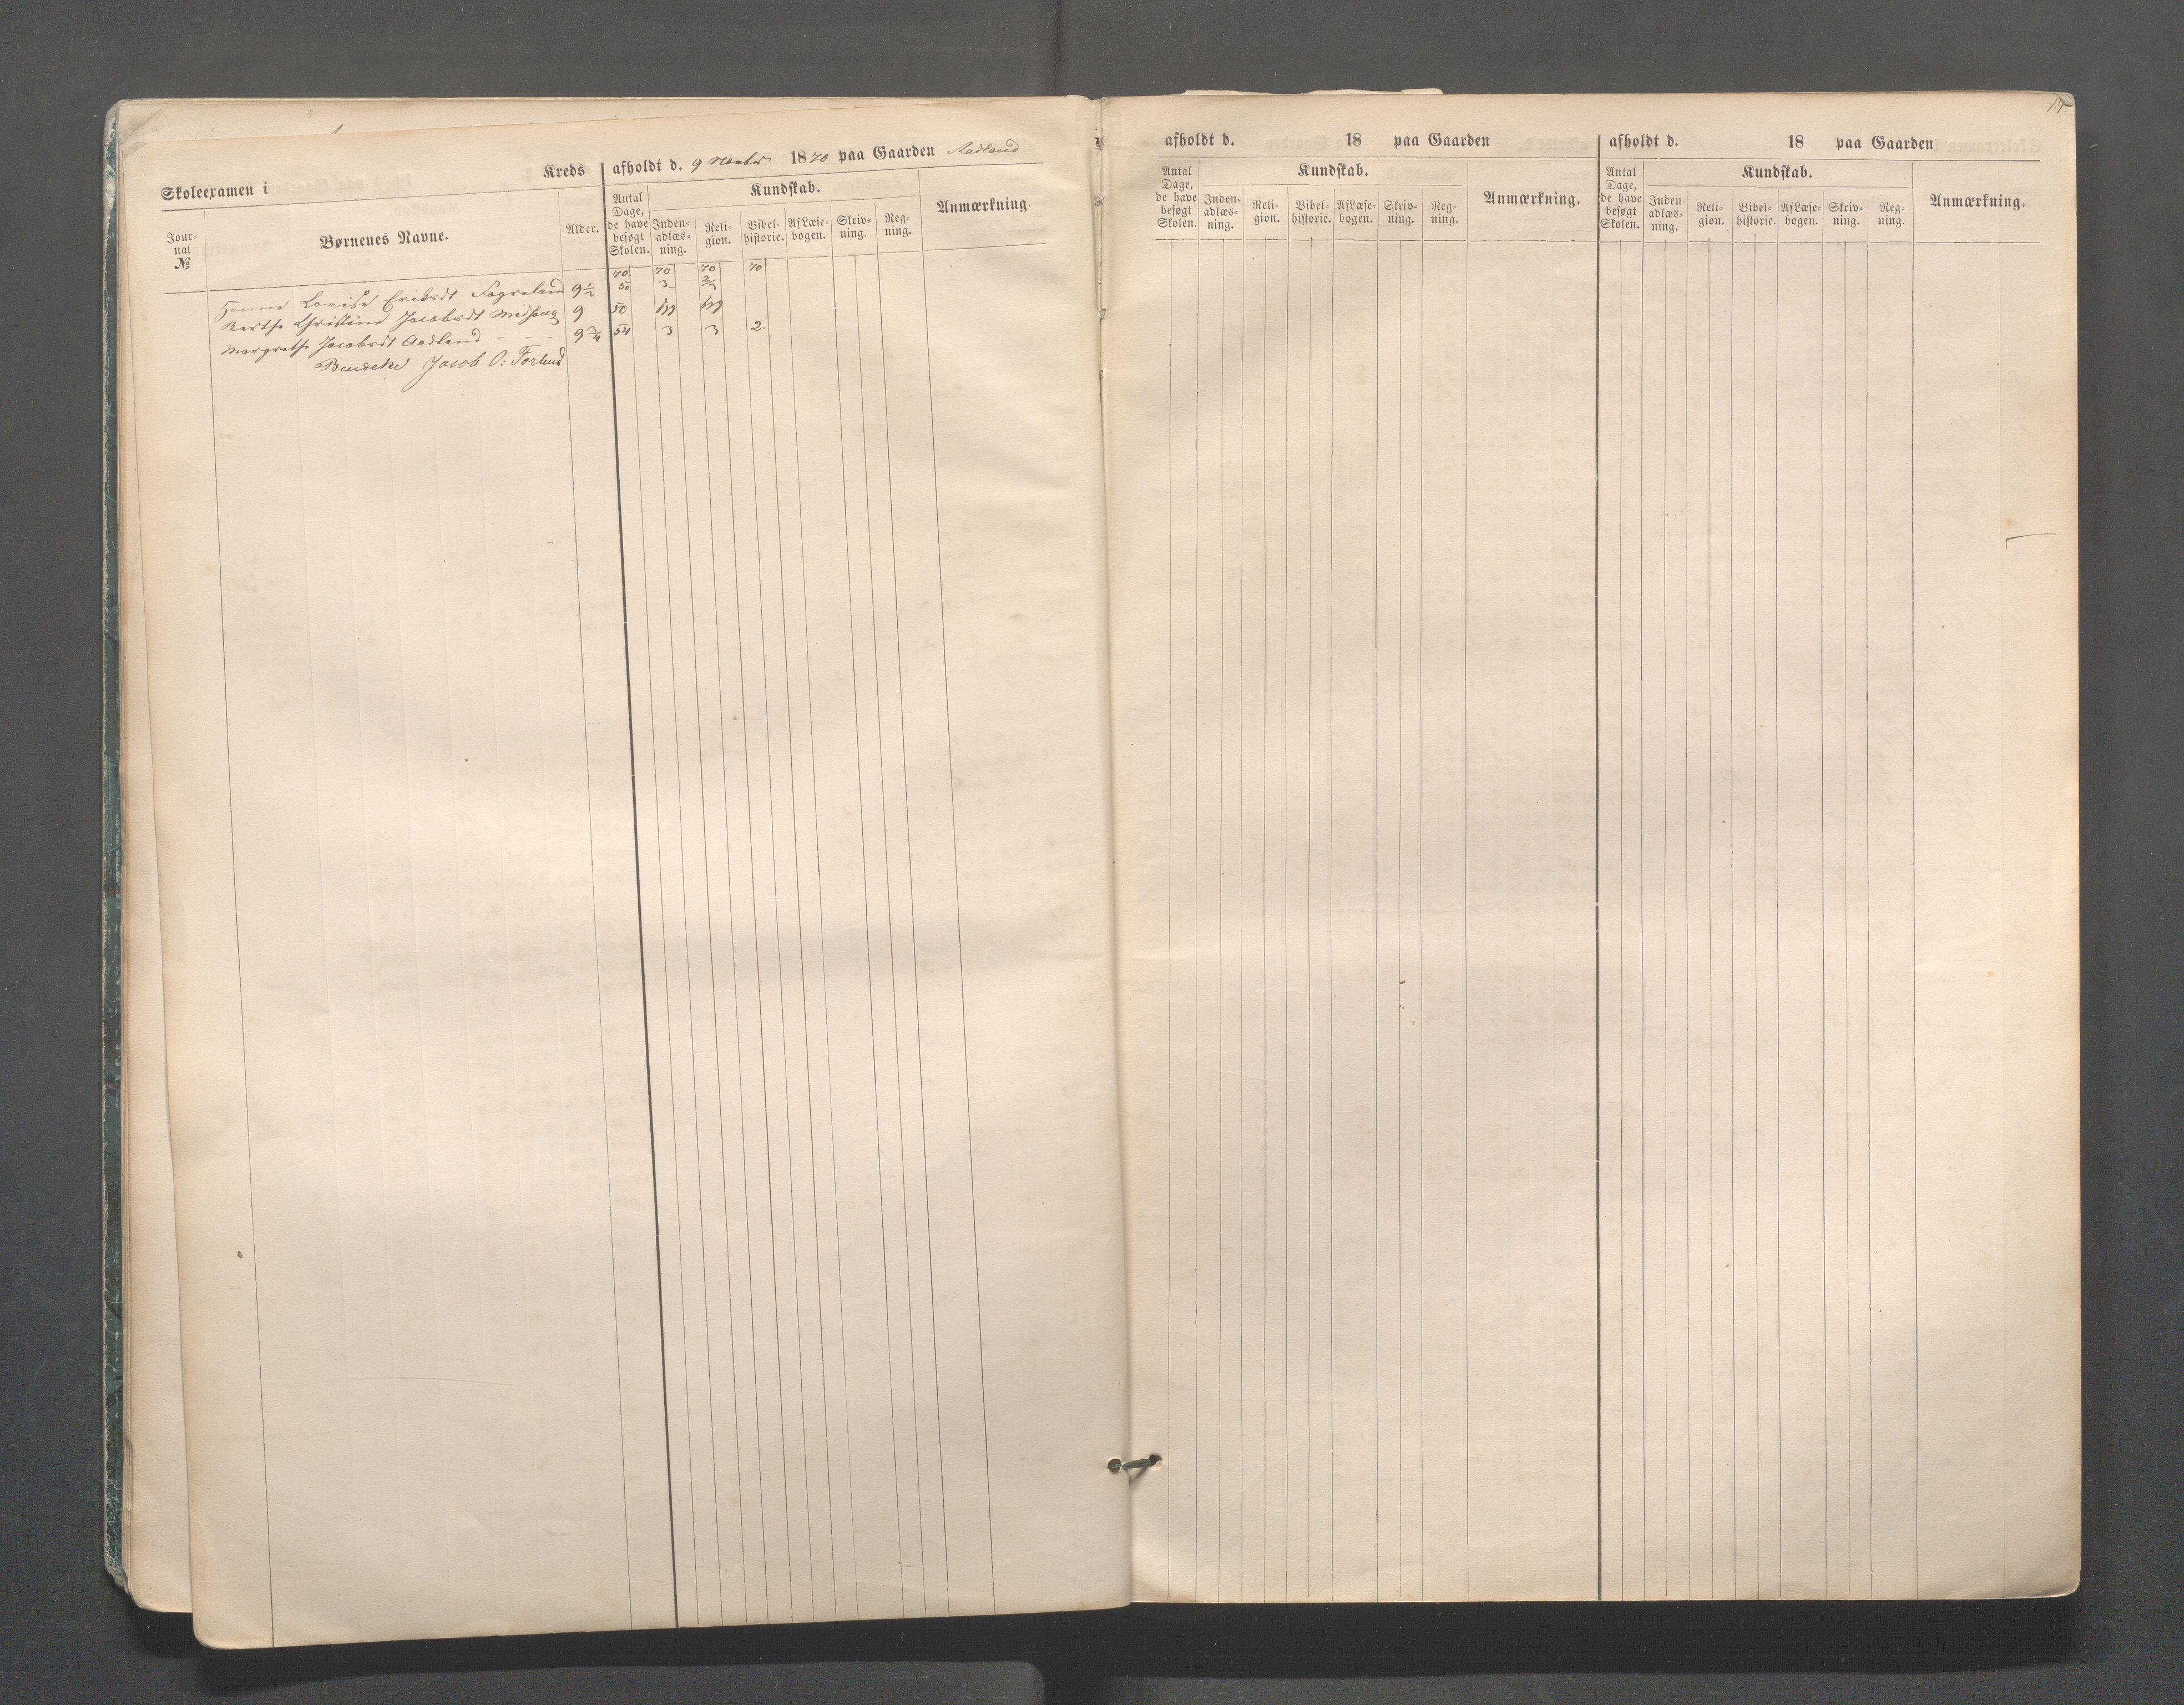 14.
Skoleexamen i Kreds
afholdt d. 9 Novbr 1870 paa Gaarden Aadland
Journal №
Børnenes Navne.
Alder.
Antal Dage, de have besøgt Skolen.
Kundskab.
Indenadlæsning.
Religion.
Bibelhistorie.
Af Læsebogen.
Skrivning.
Regning.
Anmærkning.
70 70 70 70
Hanna Lovise Eriksdt 9½ 50 3 2/3
Berthe Christine Jacobsdt 9 50
Margrethe Jacobsdt Aadland - - - 9¾ 54 3 3 2
Jacob O: Førlund
afholdt d. 18 paa Gaarden
Antal Dage, de have besøgt Skolen.
Kundskab.
Indenadlæsning.
Religion.
Bibelhistorie.
Af Læsebogen.
Skrivning.
Regning.
Anmærkning.
afholdt d. 18 paa Gaarden
Antal Dage, de have besøgt Skolen.
Kundskab.
Indenadlæsning.
Religion.
Bibelhistorie.
Af Læsebogen.
Skrivning.
Regning.
Anmærkning.